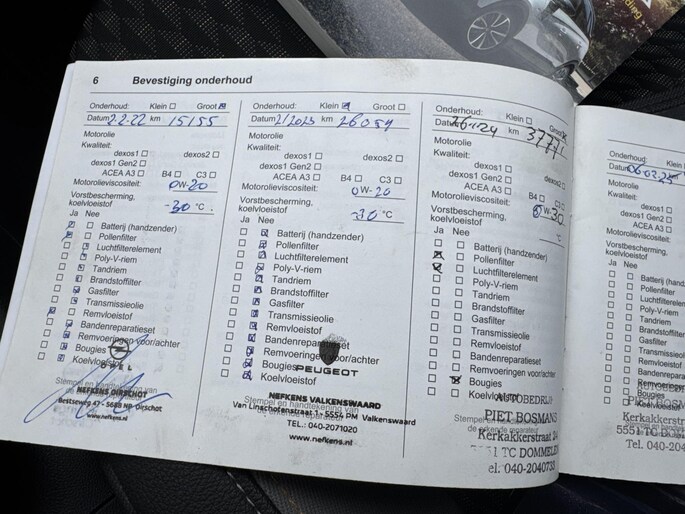 6 Bevestiging onderhoud
Onderhoud: Klein Groot
Datum 2.2.22 km 15155
Motorolie
Kwaliteit:
dexos1 dexos2
dexos1 Gen2
ACEA A3 B4 C3
Motorolieviscositeit: 0W-20
Vorstbescherming,
koelvloeistof -30 °C
Ja Nee
Batterij (handzender)
Pollenfilter
Luchtfilterelement
Poly-V-riem
Tandriem
Brandstoffilter
Gasfilter
Transmissieolie
Remvloeistof
Bandenreparatieset
Remvoeringen voor/achter
Bougies
Koelvloeistof
OPEL
Stempel en handtekening van
NEFKENS OIRSCHOT
Bestseweg 47 - 5688 NP Oirschot
www.nefkens.nl
Onderhoud: Klein Groot
Datum 2/2023 km 26059
Motorolie
Kwaliteit:
dexos1 dexos2
dexos1 Gen2
ACEA A3 B4 C3
Motorolieviscositeit: 0W-20
Vorstbescherming,
koelvloeistof -30 °C
Ja Nee
Batterij (handzender)
Pollenfilter
Luchtfilterelement
Poly-V-riem
Tandriem
Brandstoffilter
Gasfilter
Transmissieolie
Remvloeistof
Bandenreparatieset
Remvoeringen voor/achter
Bougies
Koelvloeistof
PEUGEOT
Stempel en handtekening van
NEFKENS VALKENSWAARD
Van Linschotenstraat 1 - 5554 PM Valkenswaard
TEL.: 040-2071020
www.nefkens.nl
Onderhoud: Klein Groot
Datum 26-1-24 km 37771
Motorolie
Kwaliteit:
dexos1 dexos2
dexos1 Gen2
ACEA A3 B4 C3
Motorolieviscositeit: 0W30
Vorstbescherming,
koelvloeistof °C
Ja Nee
Batterij (handzender)
Pollenfilter
Luchtfilterelement
Poly-V-riem
Tandriem
Brandstoffilter
Gasfilter
Transmissieolie
Remvloeistof
Bandenreparatieset
Remvoeringen voor/achter
Bougies
Koelvloeistof
AUTOBEDRIJF
PIET BOSMANS
Stempel en handtekening van
de erkende reparateur
Kerkakkerstraat 24
5551 TC DOMMELEN
el. 040-2040733
Onderhoud: Klein
Datum 06-02-25
Motorolie
Kwaliteit:
dexos1
dexos1 Gen2
ACEA A3
Motorolieviscositeit:
Vorstbescherming,
koelvloeistof
Ja Nee
Batterij (handze
Pollenfilter
Luchtfilterelement
Poly-V-riem
Tandriem
Brandstoffilter
Gasfilter
Transmissieolie
Remvloeistof
Bandenrepara
Remvoeringen
Bougies
Koelvloeistof
PIET BOSMAN
Kerkakkerstra
5551 TC DOM
Tel. 040-204